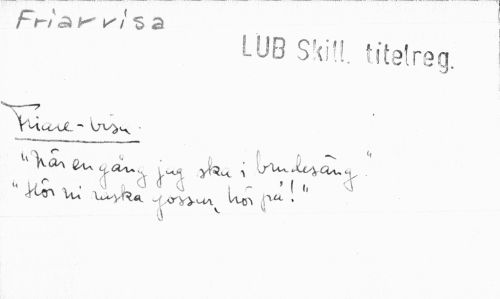 Friarvisa
LUB Skill. titelreg.
Friare-visa.
"När en gång jag ska i brudesäng."
"Hör ni raska gossar, hör på!"